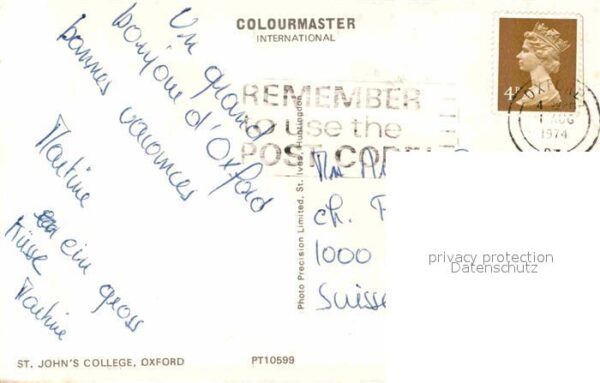 COLOURMASTER
INTERNATIONAL
Un grand
bonjour d'Oxford
bonnes vacances
Martine
ein gross
Küsse
Martine
REMEMBER
to use the
POST CODE
OXFORD
AUG
1974
Photo Precision Limited, St. Ives, Huntingdon
ch.
1000
Suisse
privacy protection
Datenschutz
ST. JOHN'S COLLEGE, OXFORD
PT10599